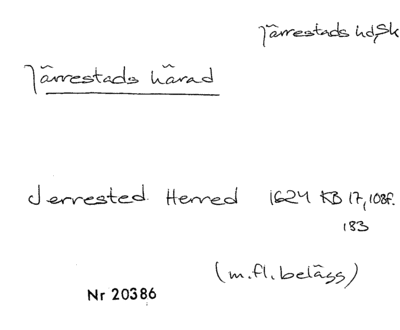 Järrestads hd, Sk
Järrestads härad
Jerrested Herred 1624 KB 17, 108f.
183
(m.fl. belägg)
Nr 20386